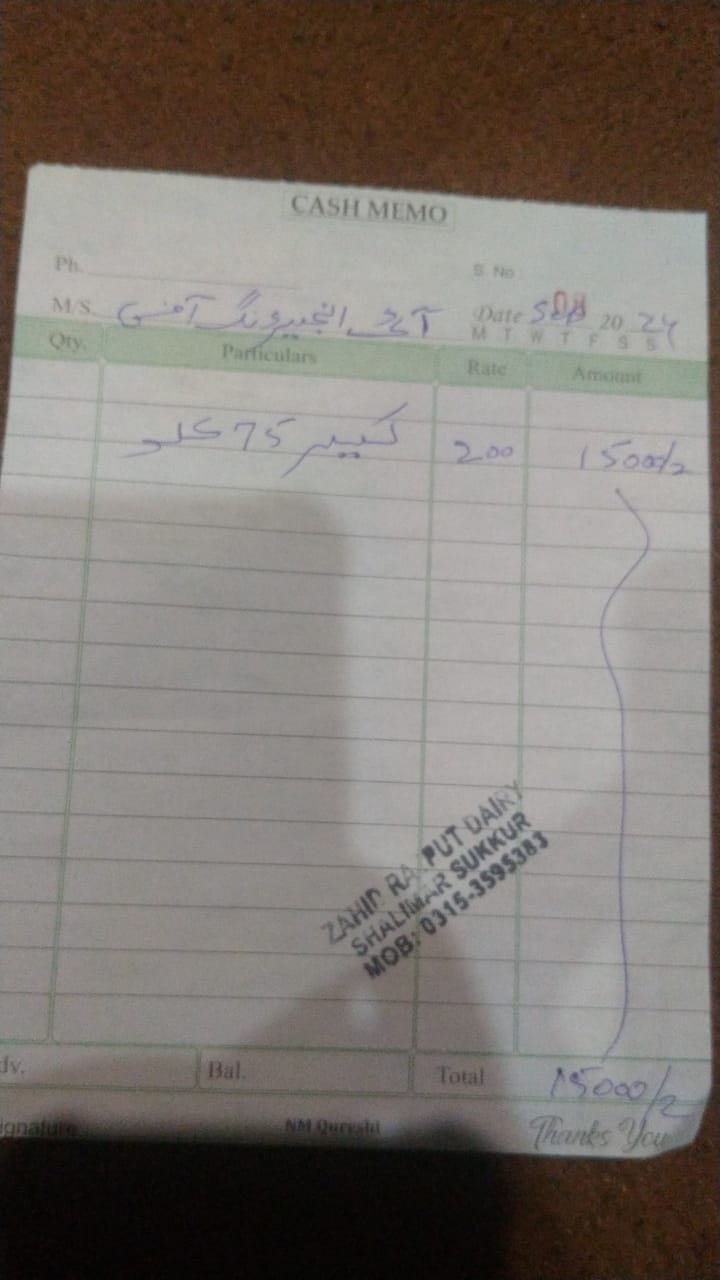 CASH MEMO
Ph.
S. No
M/S. انجینرنگ آفس
Date Sep 20 24
M T W T F S S
Qty. Particulars Rate Amount
75 کلو 200 1500/2
ZAHID RAJPUT DAIRY
SHALIMAR SUKKUR
MOB: 0315-3595383
dv. Bal. Total 15000/2
ignature
NM Qureshi
Thanks You